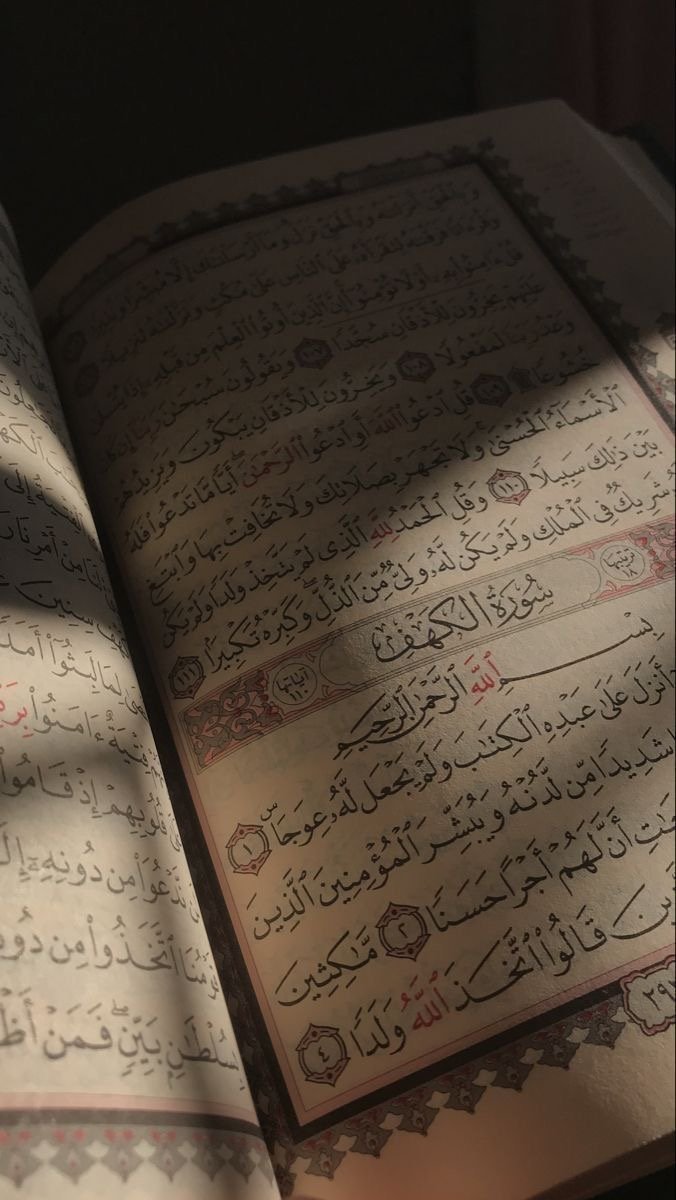 وَبِٱلْحَقِّ أَنزَلْنَٰهُ وَبِٱلْحَقِّ نَزَلَ وَمَآ أَرْسَلْنَٰكَ إِلَّا مُبَشِّرًا وَنَذِيرًا
وَقُرْءَانًا فَرَقْنَٰهُ لِتَقْرَأَهُۥ عَلَى ٱلنَّاسِ عَلَىٰ مُكْثٍ وَنَزَّلْنَٰهُ تَنزِيلًا
قُلْ ءَامِنُوا۟ بِهِۦٓ أَوْ لَا تُؤْمِنُوٓا۟ إِنَّ ٱلَّذِينَ أُوتُوا۟ ٱلْعِلْمَ مِن قَبْلِهِۦٓ إِذَا يُتْلَىٰ
عَلَيْهِمْ يَخِرُّونَ لِلْأَذْقَانِ سُجَّدًا ١٠٧ وَيَقُولُونَ سُبْحَٰنَ رَبِّنَآ إِن
وَعْدُ رَبِّنَا لَمَفْعُولًا ١٠٨ وَيَخِرُّونَ لِلْأَذْقَانِ يَبْكُونَ وَيَزِيدُهُمْ
خُشُوعًا ١٠٩ قُلِ ٱدْعُوا۟ ٱللَّهَ أَوِ ٱدْعُوا۟ ٱلرَّحْمَٰنَ أَيًّا مَّا تَدْعُوا۟ فَلَهُ
ٱلْأَسْمَآءُ ٱلْحُسْنَىٰ وَلَا تَجْهَرْ بِصَلَاتِكَ وَلَا تُخَافِتْ بِهَا وَٱبْتَغِ
بَيْنَ ذَٰلِكَ سَبِيلًا ١١٠ وَقُلِ ٱلْحَمْدُ لِلَّهِ ٱلَّذِى لَمْ يَتَّخِذْ وَلَدًا وَلَمْ يَكُن
شَرِيكٌ فِى ٱلْمُلْكِ وَلَمْ يَكُن لَّهُۥ وَلِىٌّ مِّنَ ٱلذُّلِّ وَكَبِّرْهُ تَكْبِيرًۢا ١١١
ترتيبها ١٨ سُورَةُ الكَهْفِ آياتها ١١٠
بِسْمِ ٱللَّهِ ٱلرَّحْمَٰنِ ٱلرَّحِيمِ
أَنزَلَ عَلَىٰ عَبْدِهِ ٱلْكِتَٰبَ وَلَمْ يَجْعَل لَّهُۥ عِوَجَاۜ ١
شَدِيدًا مِّن لَّدُنْهُ وَيُبَشِّرَ ٱلْمُؤْمِنِينَ ٱلَّذِينَ
أَنَّ لَهُمْ أَجْرًا حَسَنًا ٢ مَّٰكِثِينَ
قَالُوا۟ ٱتَّخَذَ ٱللَّهُ وَلَدًا ٤
مِنْ أَمْرِنَا
سِنِينَ
لِمَا لَبِثُوٓا۟ أَمَدًا
فِتْيَةٌ ءَامَنُوا۟
قُلُوبِهِمْ إِذْ قَامُوا۟
نَّدْعُوَا۟ مِن دُونِهِۦٓ
ٱتَّخَذُوا۟ مِن
بِسُلْطَٰنٍۭ بَيِّنٍ فَمَنْ